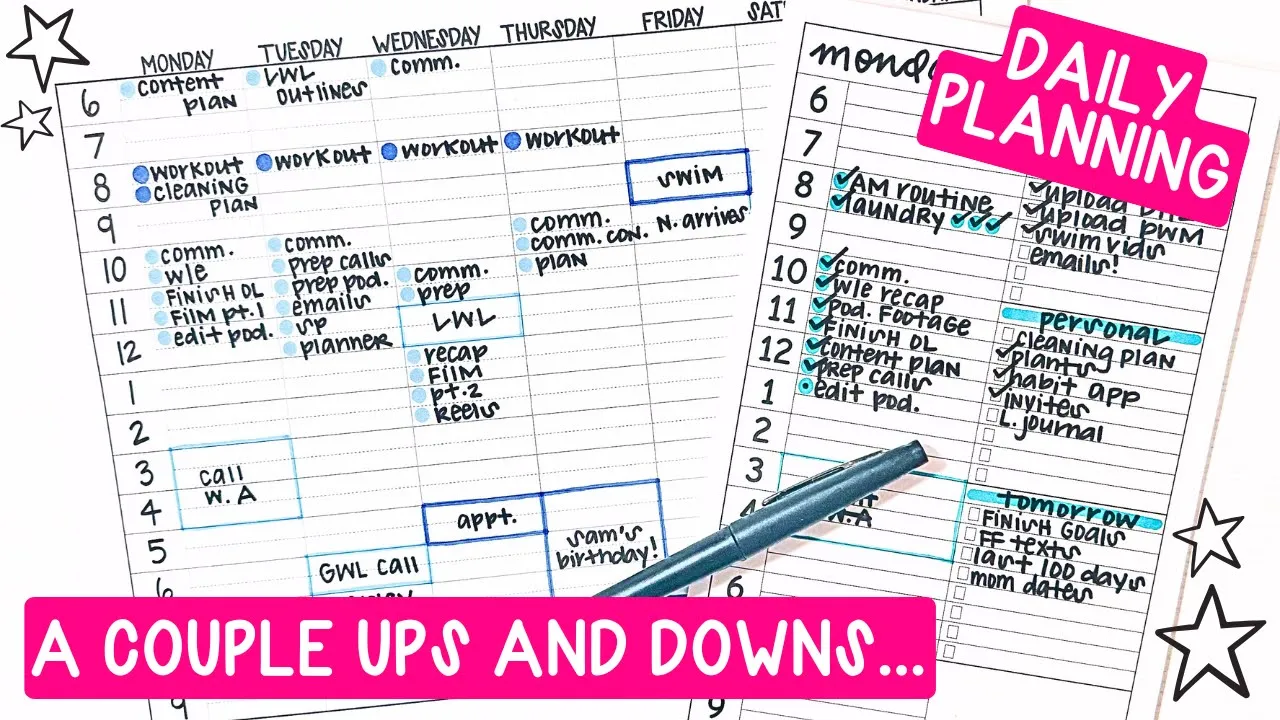 MONDAY
TUESDAY
WEDNESDAY
THURSDAY
FRIDAY
6
7
8
9
10
11
12
1
2
3
4
5
6
9
content
plan
workout
cleaning
plan
comm.
wle
Finish DL
Film pt.1
edit pod.
call
W.A
LWL
outlines
workout
comm.
prep calls
prep pod.
emails
sp
planner
GWL call
comm.
workout
comm.
prep
LWL
recap
Film
pt.2
reels
appt.
workout
comm.
comm. con.
plan
sam's
birthday!
swim
N. arrives
DAILY
PLANNING
6
7
8
9
10
11
12
1
2
3
6
9
AM routine
laundry
comm.
wle recap
pod. footage
Finish DL
content plan
prep calls
edit pod.
W.A
upload
upload PWM
swim vids
emails!
personal
cleaning plan
plants
habit app
invites
L. journal
tomorrow
Finish Goals
FF texts
last 100 days
mom dates
A COUPLE UPS AND DOWNS...